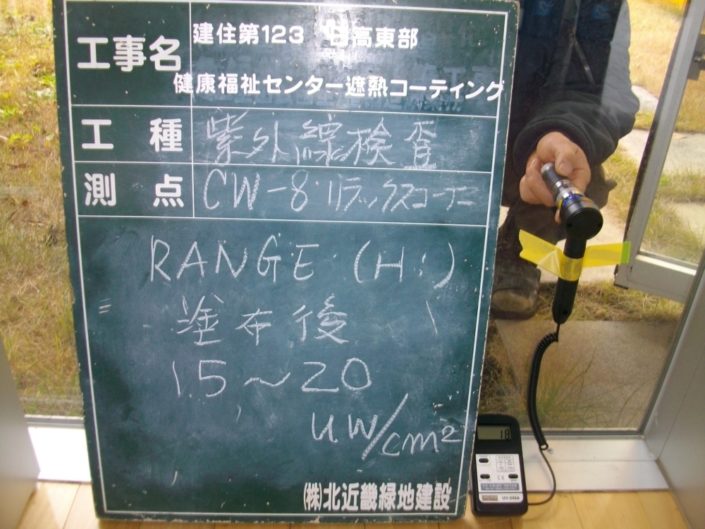 工事名 建住第123 日高東部
健康福祉センター遮熱コーティング
工種 紫外線検査
測点 CW-8 リラックスコーナー
RANGE (Hi)
塗布後
15～20
uw/cm²
㈱北近畿緑地建設
18